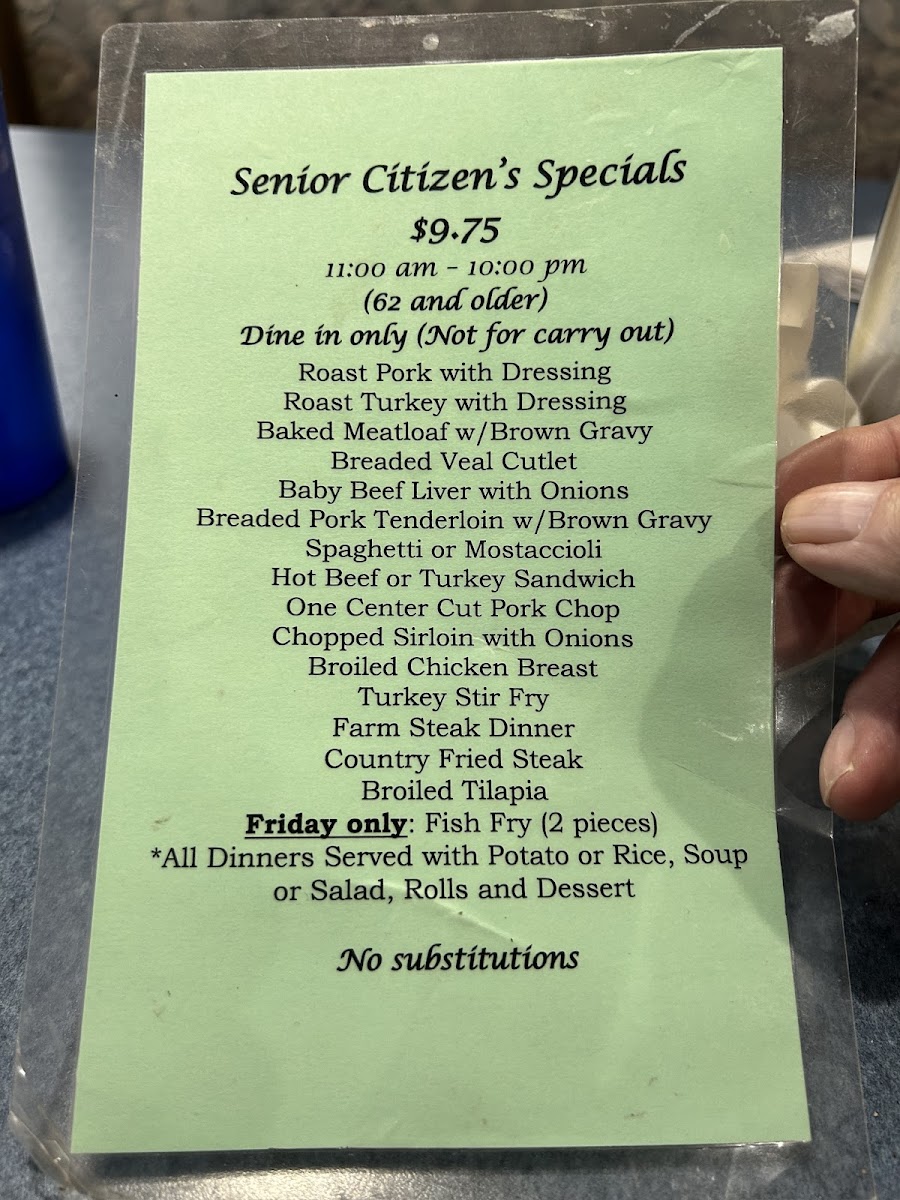 Senior Citizen's Specials
$9.75
11:00 am - 10:00 pm
(62 and older)
Dine in only (Not for carry out)
Roast Pork with Dressing
Roast Turkey with Dressing
Baked Meatloaf w/Brown Gravy
Breaded Veal Cutlet
Baby Beef Liver with Onions
Breaded Pork Tenderloin w/Brown Gravy
Spaghetti or Mostaccioli
Hot Beef or Turkey Sandwich
One Center Cut Pork Chop
Chopped Sirloin with Onions
Broiled Chicken Breast
Turkey Stir Fry
Farm Steak Dinner
Country Fried Steak
Broiled Tilapia
Friday only: Fish Fry (2 pieces)
*All Dinners Served with Potato or Rice, Soup
or Salad, Rolls and Dessert
No substitutions